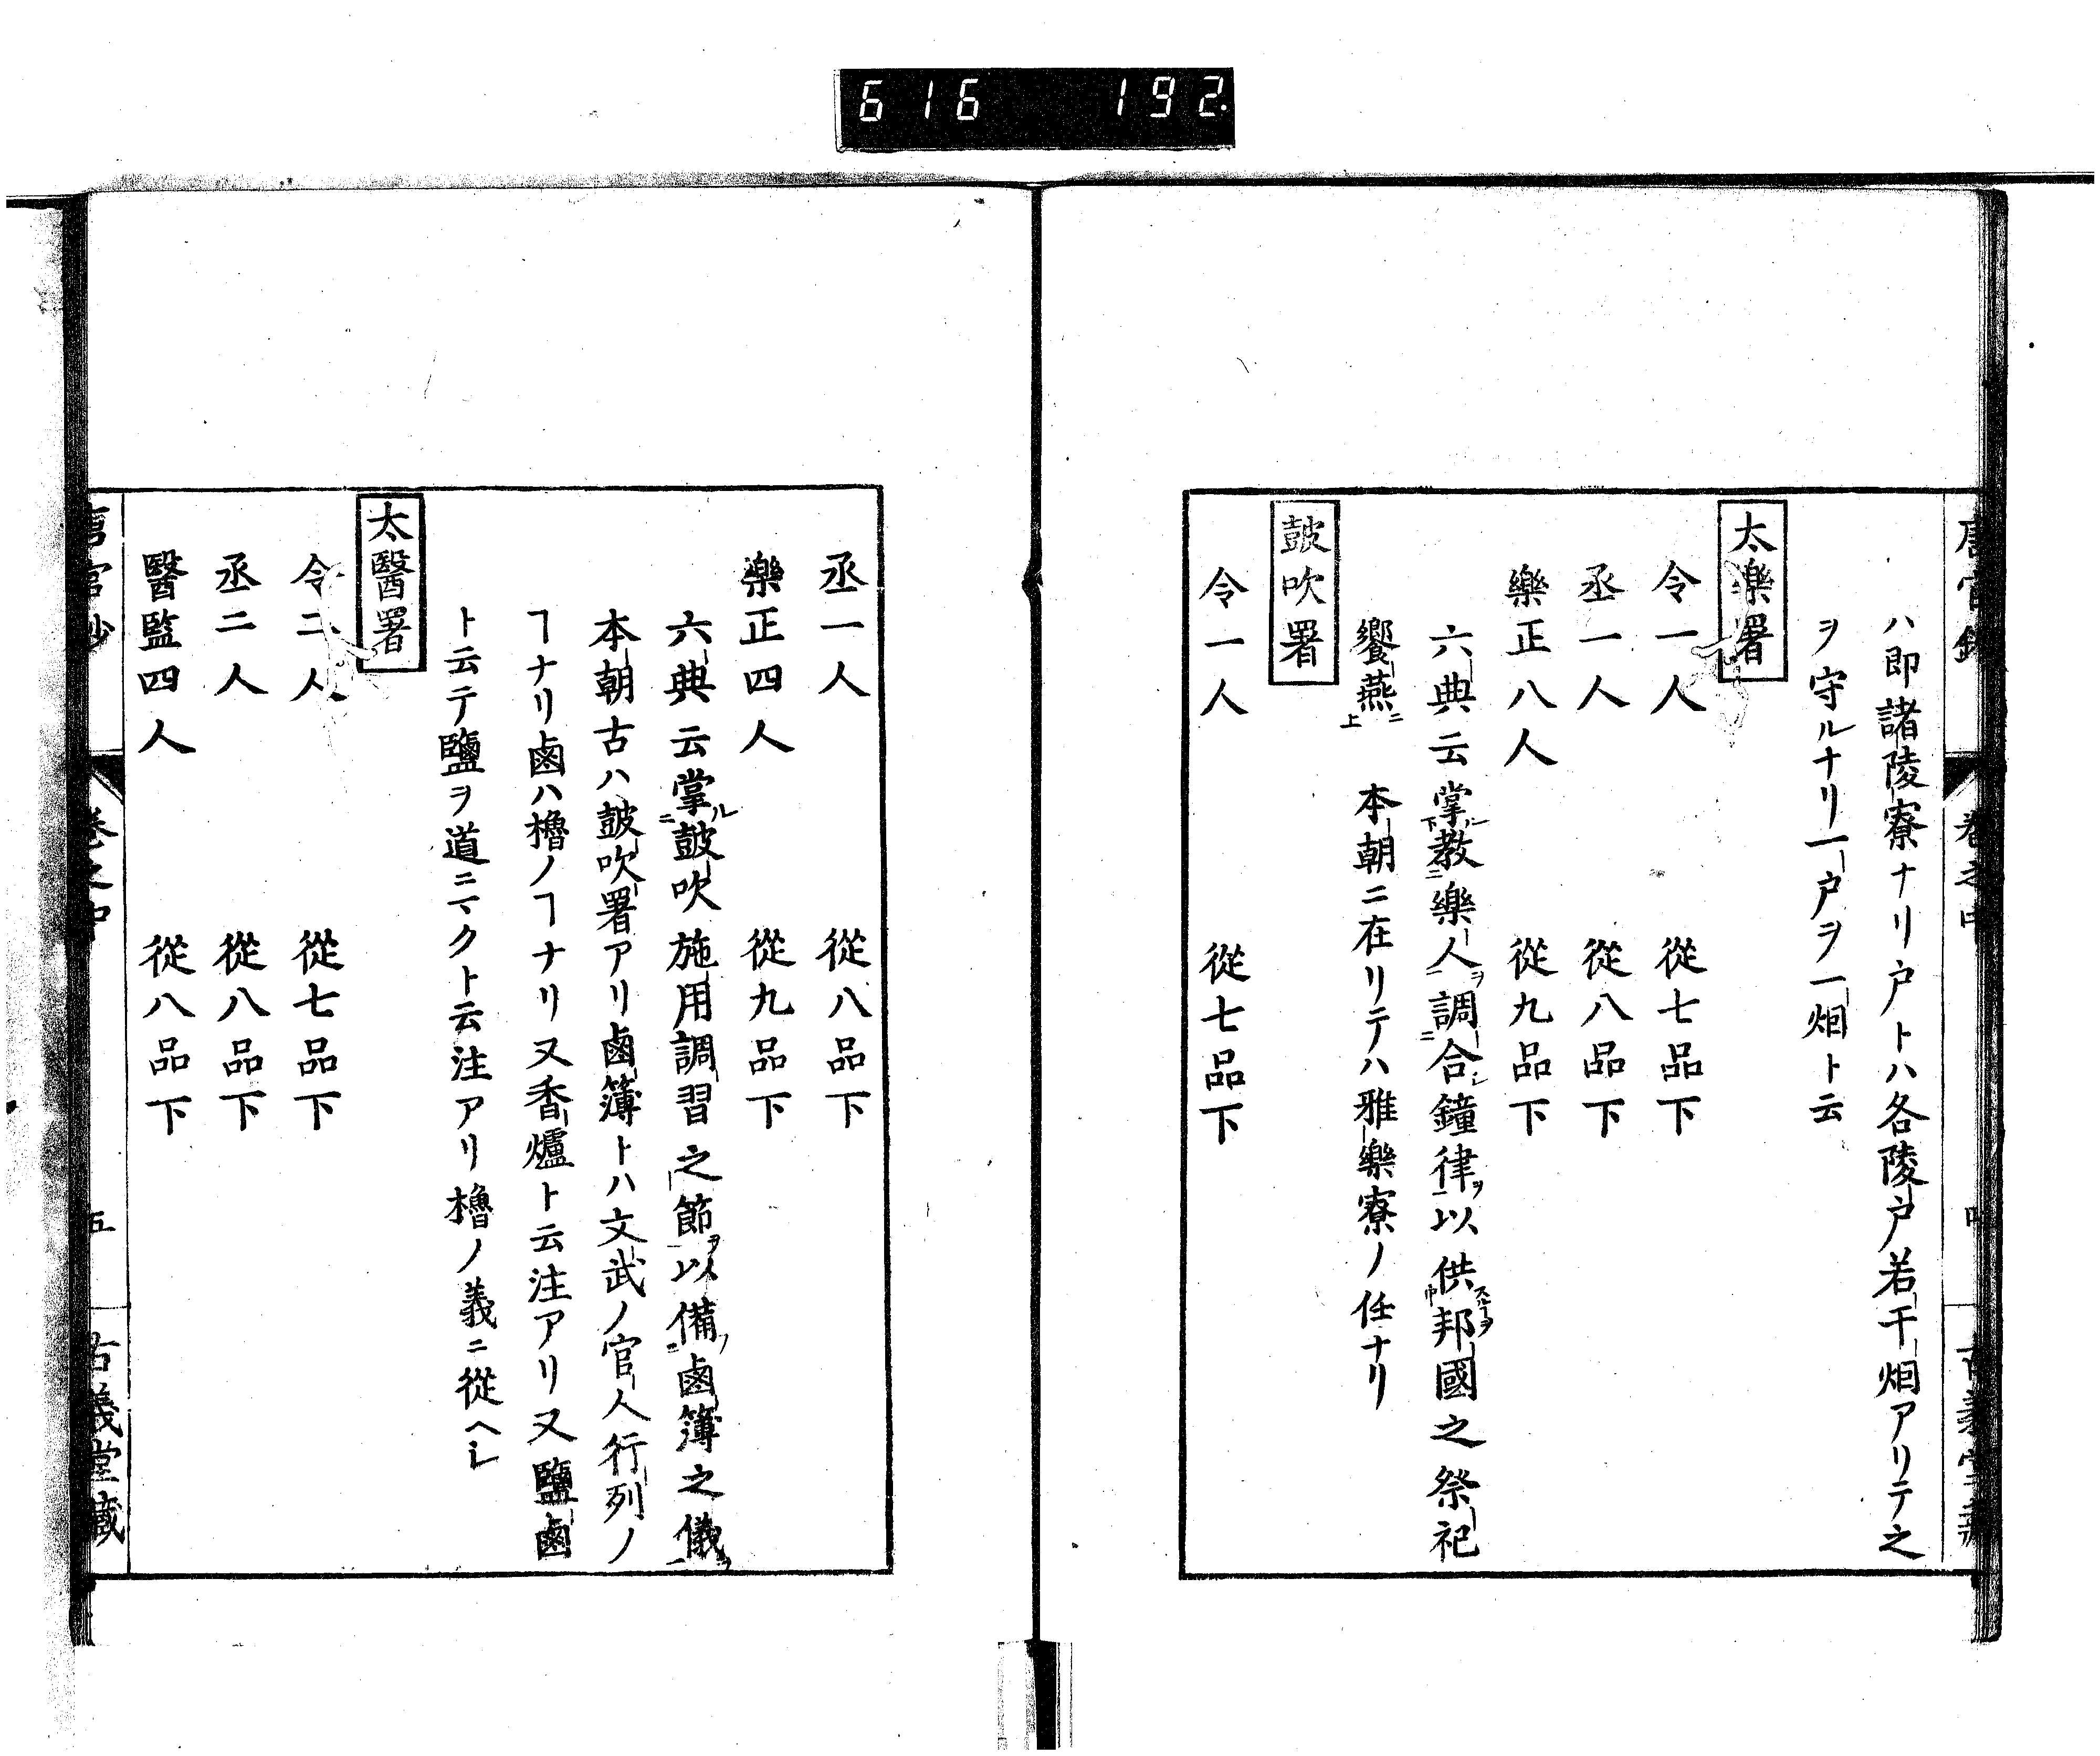 616 192
ハ即諸陵寮ナリ戸トハ各陵戸若干烟アリテ之
ヲ守ルナリ一戸ヲ一烟ト云
太樂署
令一人 從七品下
丞一人 從八品下
樂正八人 從九品下
六典云掌教樂人調合鐘律以供邦國之祭祀
饗燕 本朝ニ在リテハ雅樂寮ノ任ナリ
鼓吹署
令一人 從七品下
丞一人 從八品下
樂正四人 從九品下
六典云掌鼓吹施用調習之節以備鹵簿之儀
本朝古ハ鼓吹署アリ鹵簿トハ文武ノ官人行列ノ
ヿナリ鹵ハ櫓ノヿナリ又香爐ト云注アリ又鹽鹵
ト云テ鹽ヲ道ニマクト云注アリ櫓ノ義ニ從ヘシ
太醫署
令二人 從七品下
丞二人 從八品下
醫監四人 從八品下
卷之中
五
古義堂藏